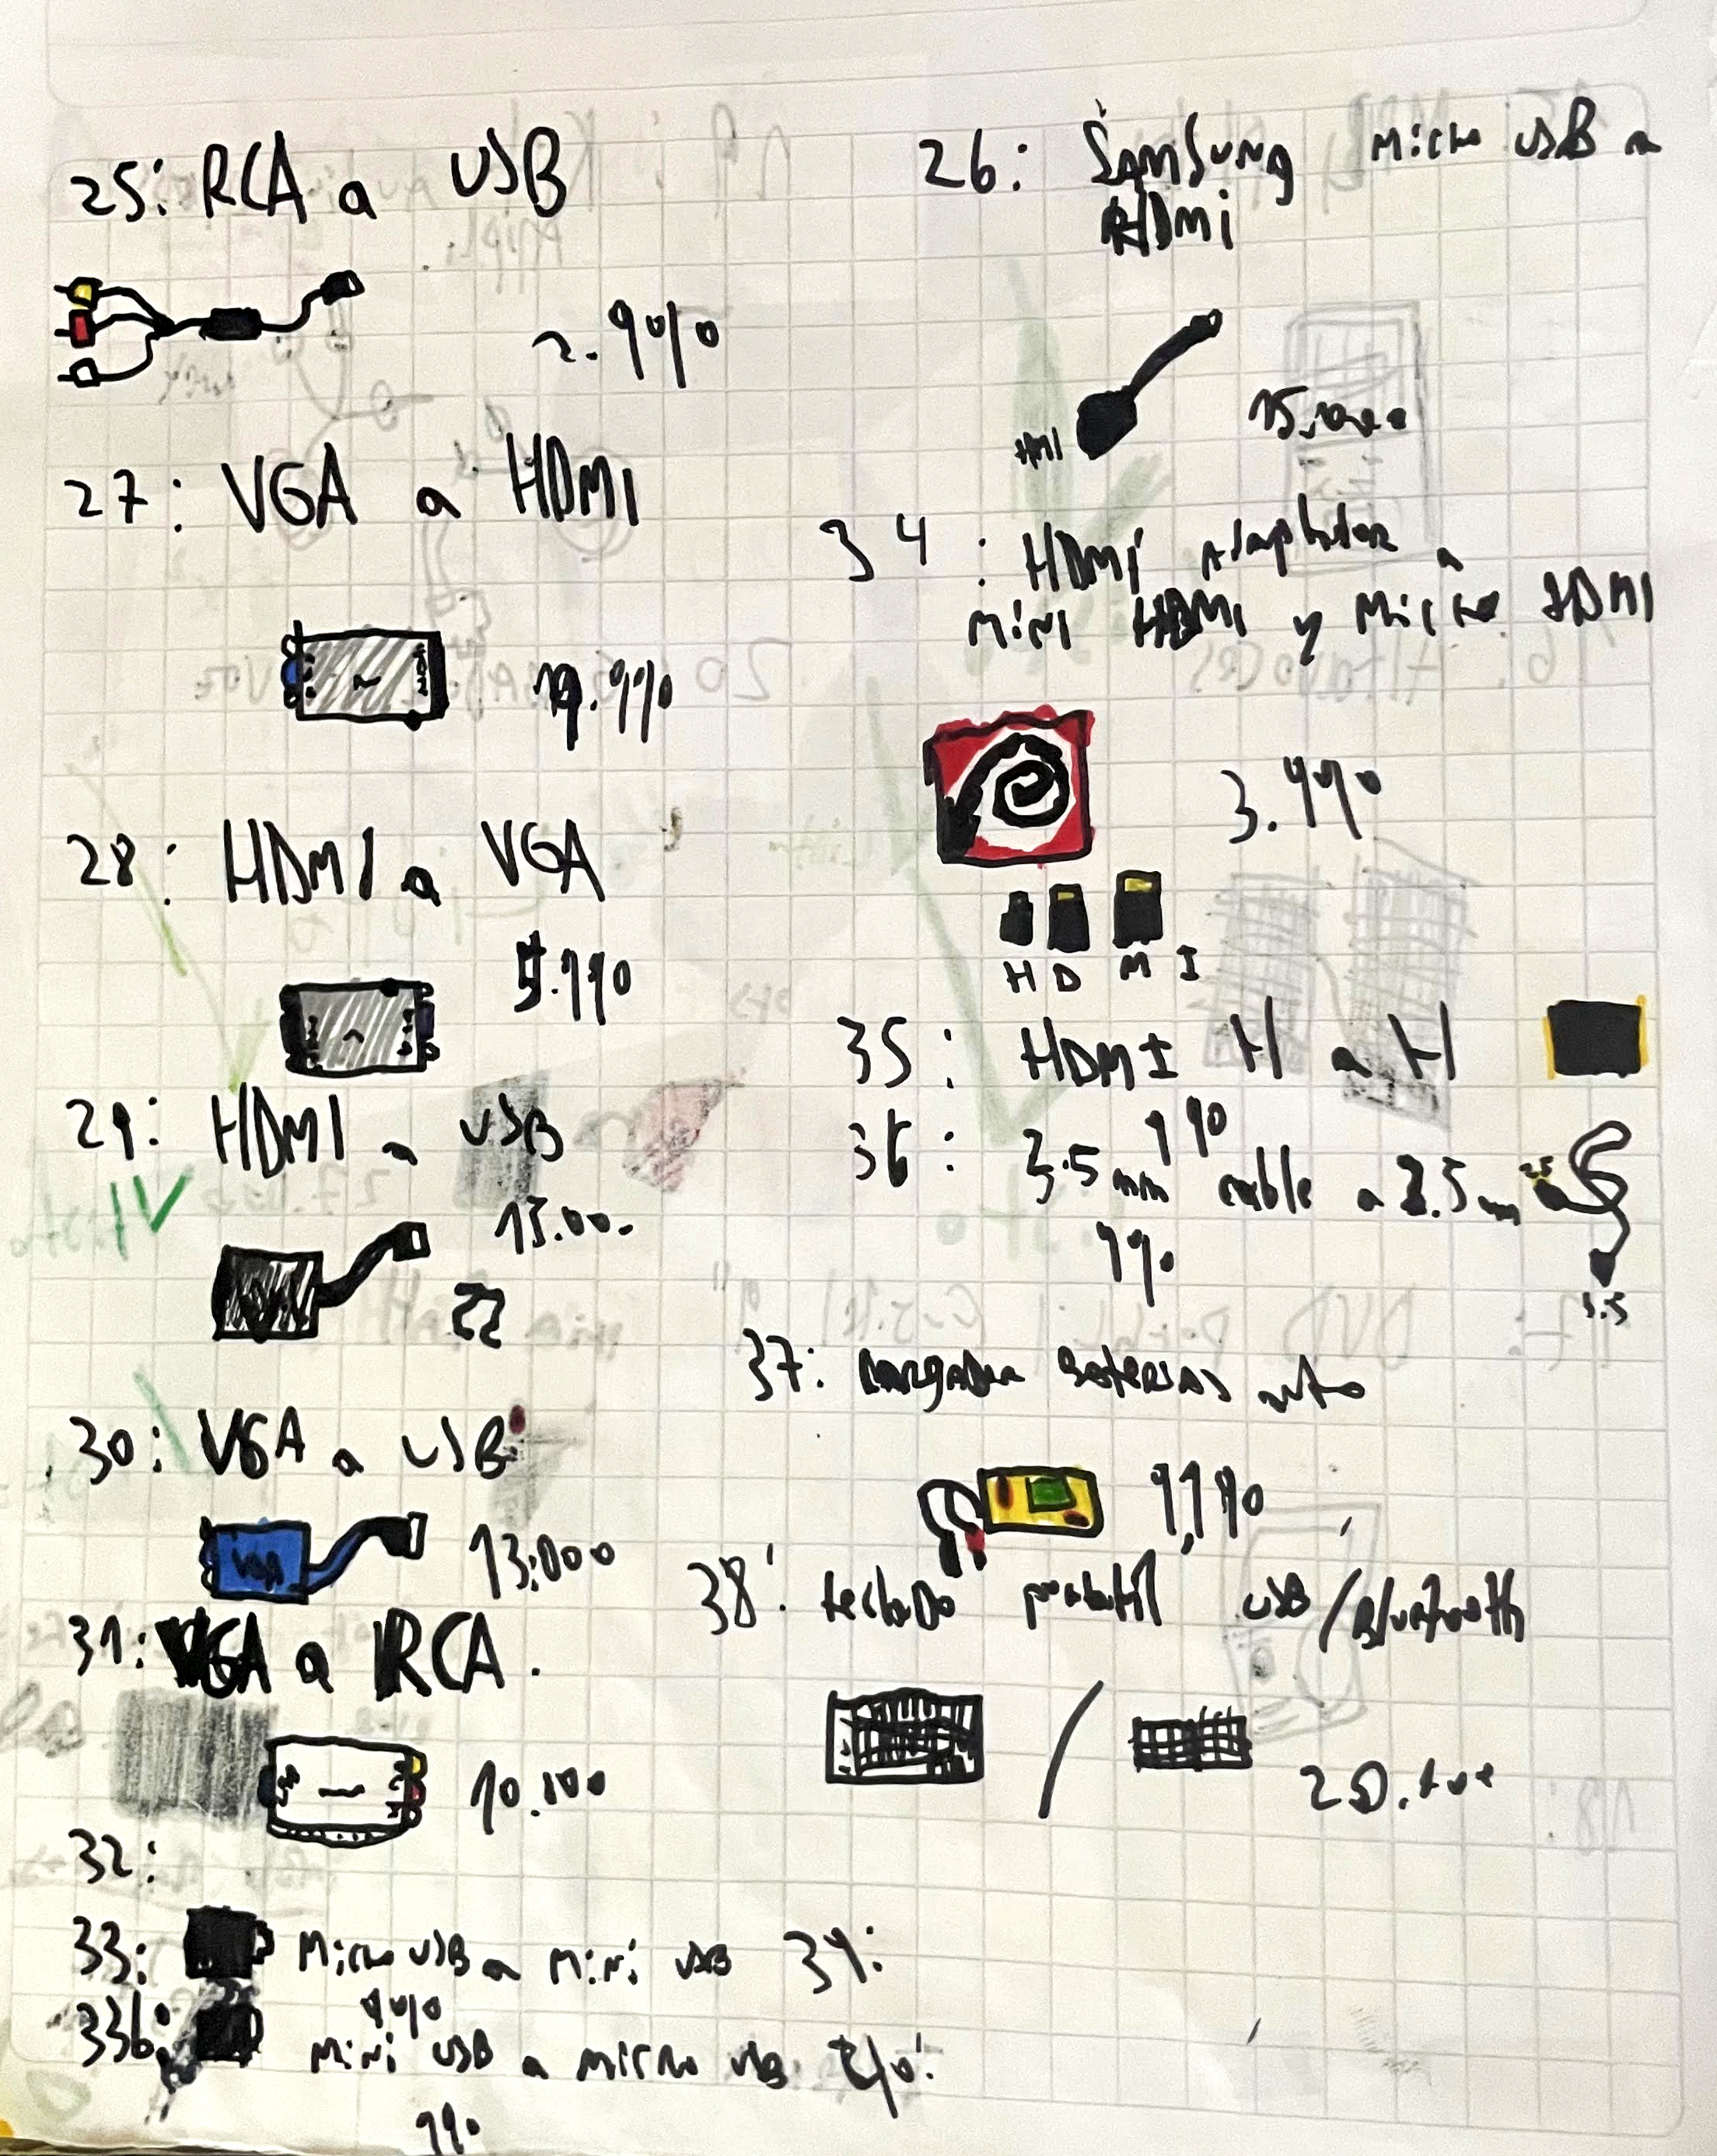 25: RCA a USB
2.990
27: VGA a HDMI
19.990
28: HDMI a VGA
5.990
29: HDMI a USB
13.000
30: VGA a USB
VGA
13.000
31: VGA a RCA.
10.000
32:
33: Micro USB a Mini USB
990
33b: Mini USB a micro USB
990
26: SAMSUNG Micro USB a
HDMI
HMI
15.000
34: HDMI adaptador a
Mini HDMI y Micro HDMI
3.990
H D M I
35: HDMI H a H
990
36: 3.5 mm cable a 2.5 mm
2.5
990
3.5
37: cargador baterias auto
9.990
38: teclado portatil USB / Bluetooth
20.000
39:
40: